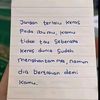 Jangan terlalu keras
Pada ibumu, kamu
tidak tau seberapa
keras dunia sudah
menghantamnya, namun
dia bertahan demi
kamu.